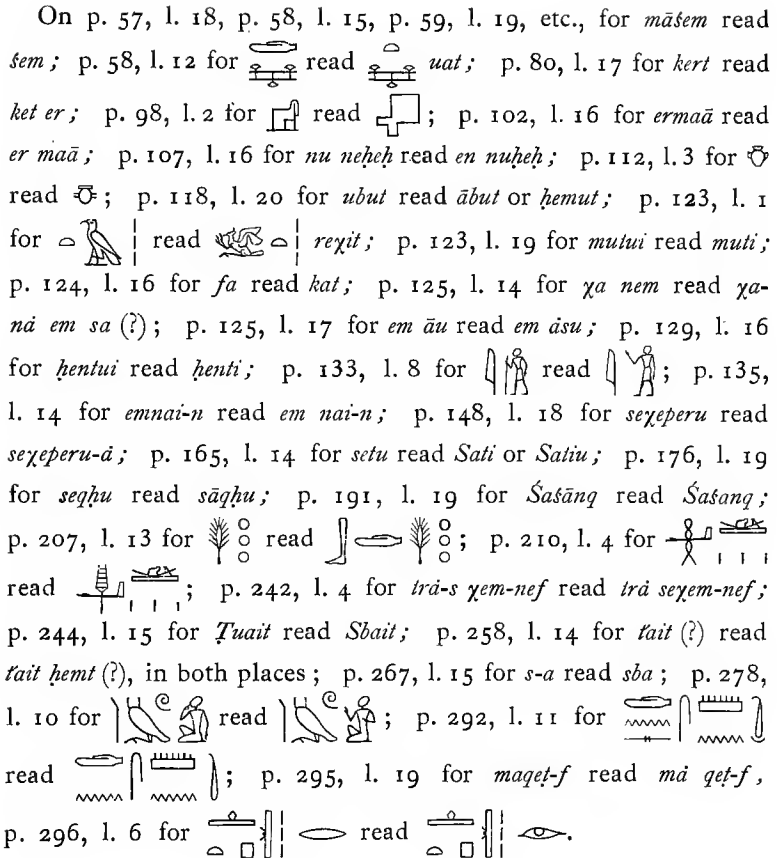 On p. 57, l. 18, p. 58, l. 15, p. 59, l. 19, etc., for māśem read
śem; p. 58, l. 12 for read uat; p. 80, l. 17 for kert read
ket er; p. 98, l. 2 for read ; p. 102, l. 16 for ermaā read
er maā; p. 107, l. 16 for nu neḥeḥ read en nuḥeḥ; p. 112, l. 3 for
read ; p. 118, l. 20 for ubut read ābut or ḥemut; p. 123, l. 1
for read reχit; p. 123, l. 19 for mutui read muti;
p. 124, l. 16 for fa read kat; p. 125, l. 14 for χa nem read χa-
nȧ em sa (?); p. 125, l. 17 for em āu read em ȧsu; p. 129, l. 16
for ḥentui read ḥenti; p. 133, l. 8 for read ; p. 135,
l. 14 for emnai-n read em nai-n; p. 148, l. 18 for seχeperu read
seχeperu-ȧ; p. 165, l. 14 for setu read Sati or Satiu; p. 176, l. 19
for seqḥu read sāqḥu; p. 191, l. 19 for Śaśānq read Śaśanq;
p. 207, l. 13 for read ; p. 210, l. 4 for
read ; p. 242, l. 4 for ȧrȧ-s χem-nef read ȧrȧ seχem-nef;
p. 244, l. 15 for Ṭuait read Sbait; p. 258, l. 14 for t'ait (?) read
t'ait ḥemt (?), in both places; p. 267, l. 15 for s-a read sba; p. 278,
l. 10 for read ; p. 292, l. 11 for
read ; p. 295, l. 19 for maqeṭ-f read mȧ qeṭ-f,
p. 296, l. 6 for read .